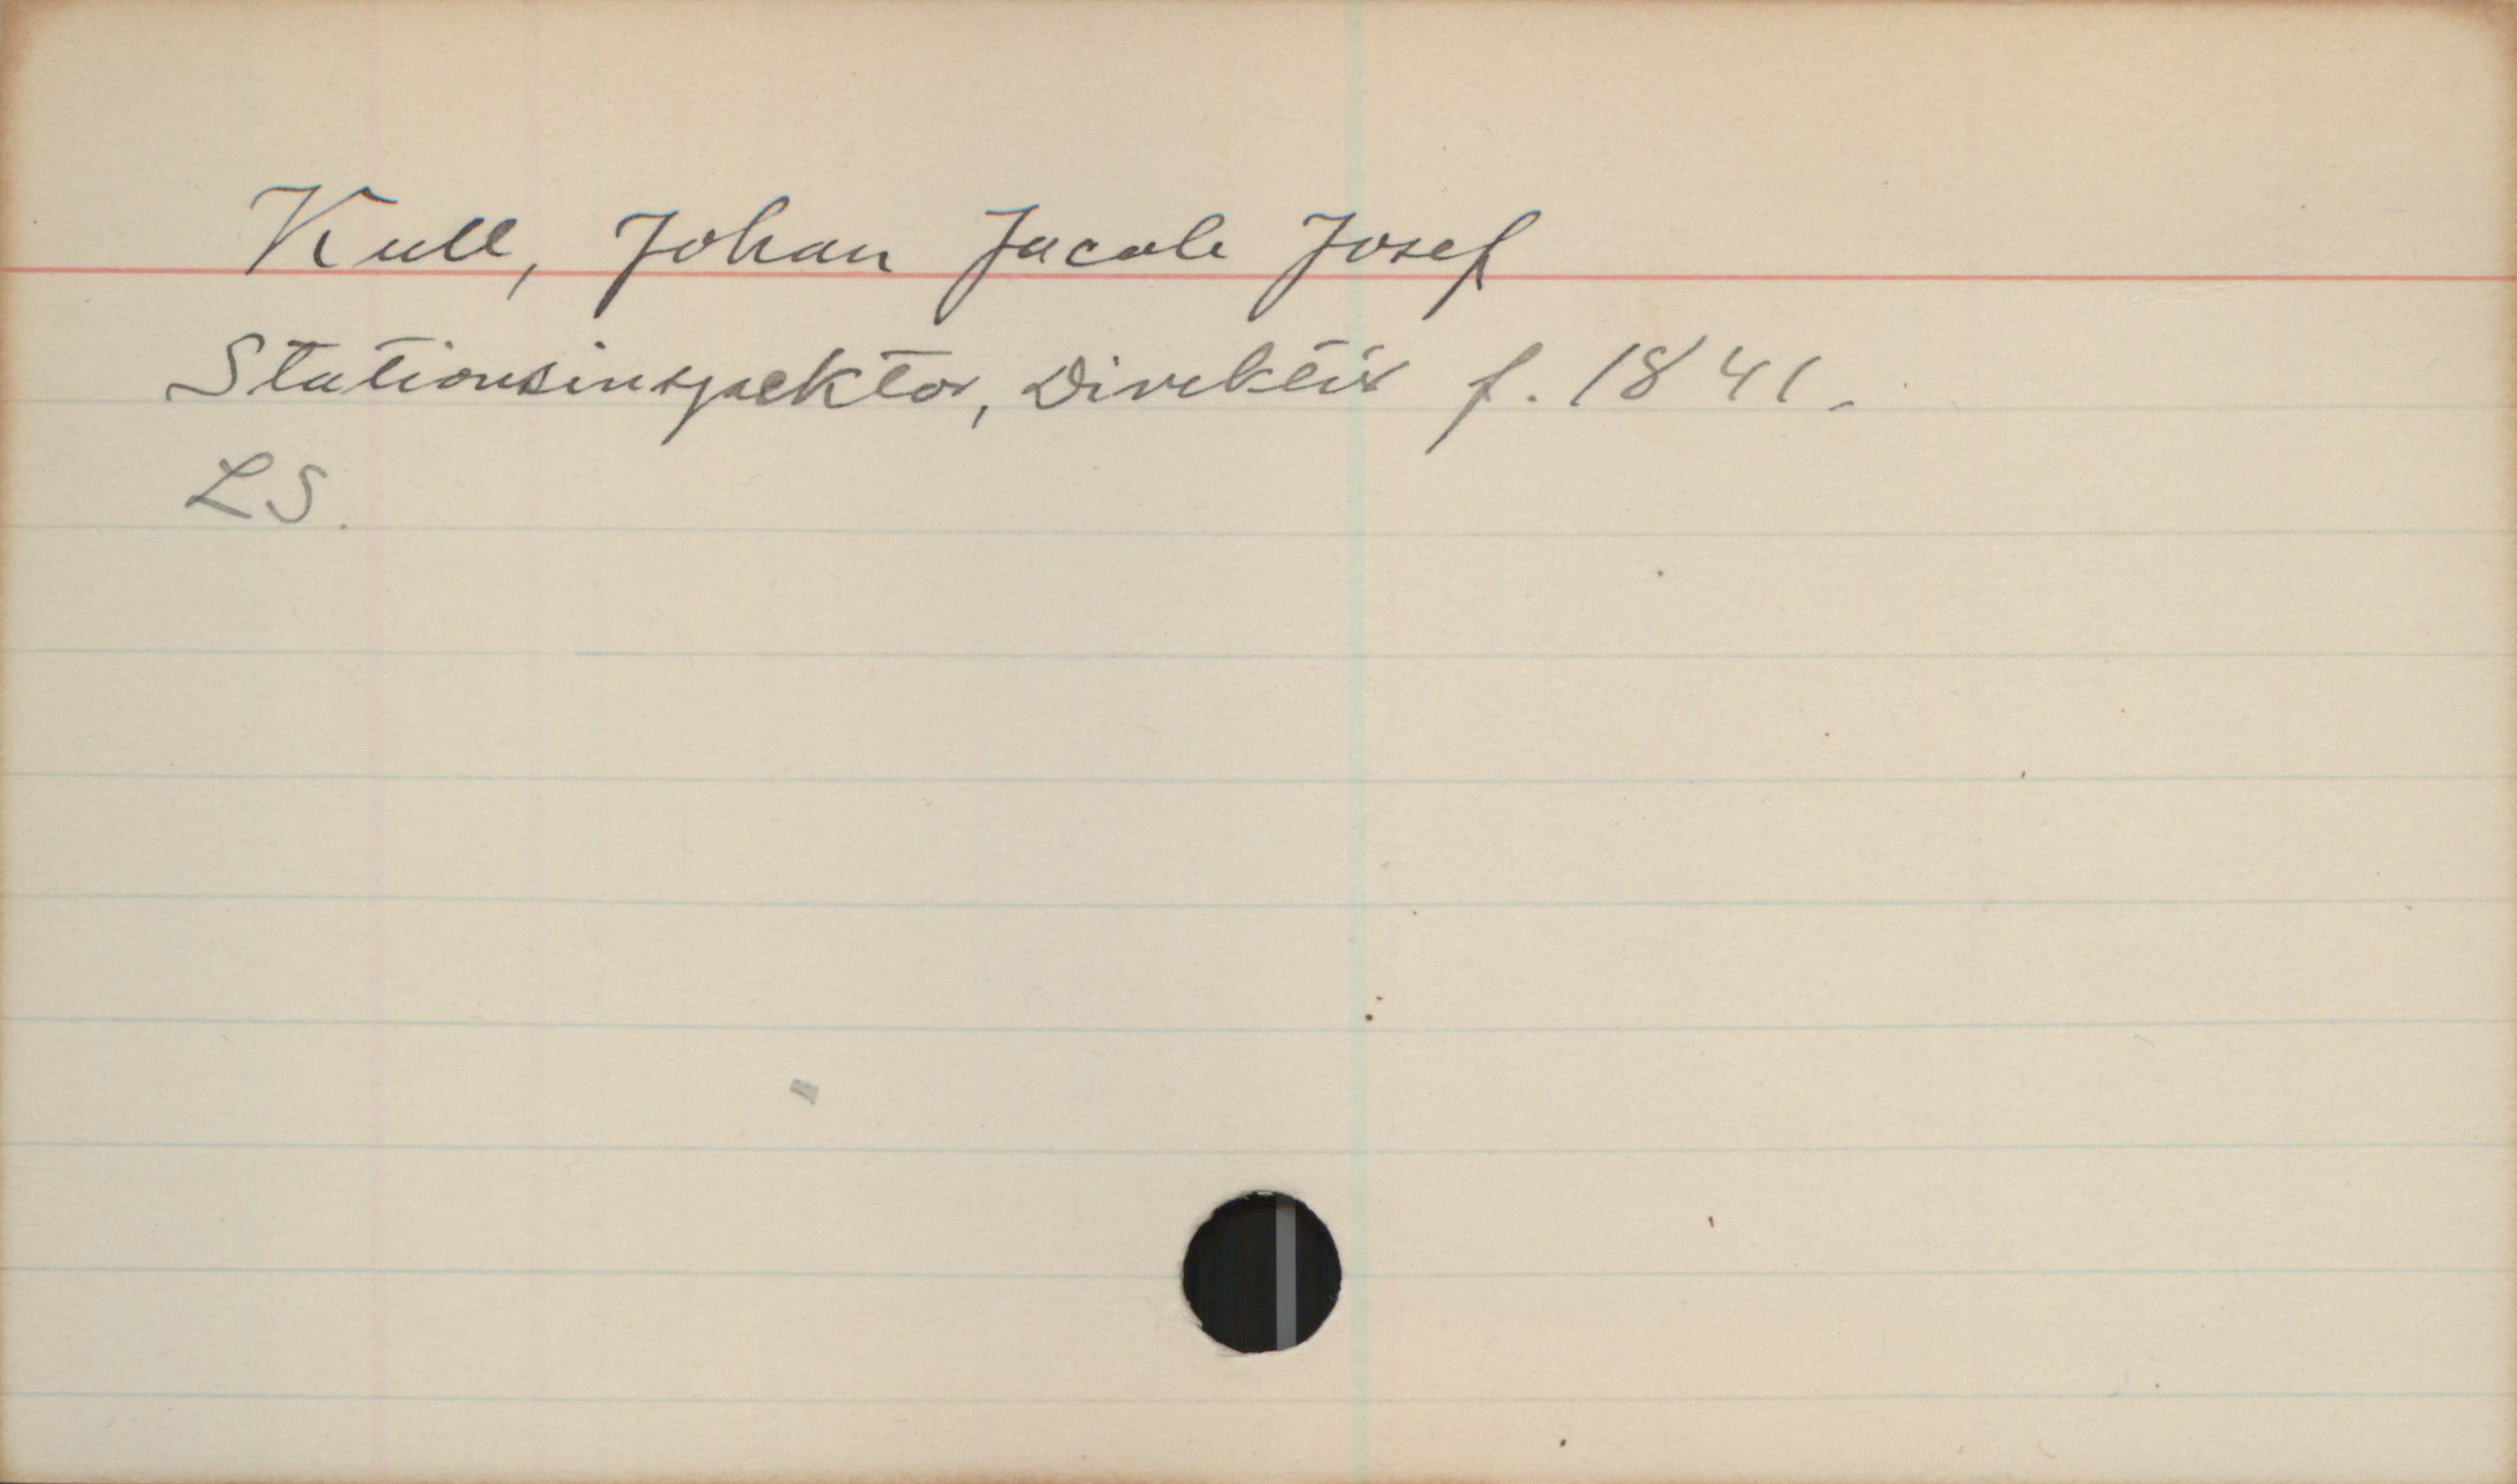 Kull, Johan Jacob Josef
Stationsinspektor, Direktör f. 1841.
LS.